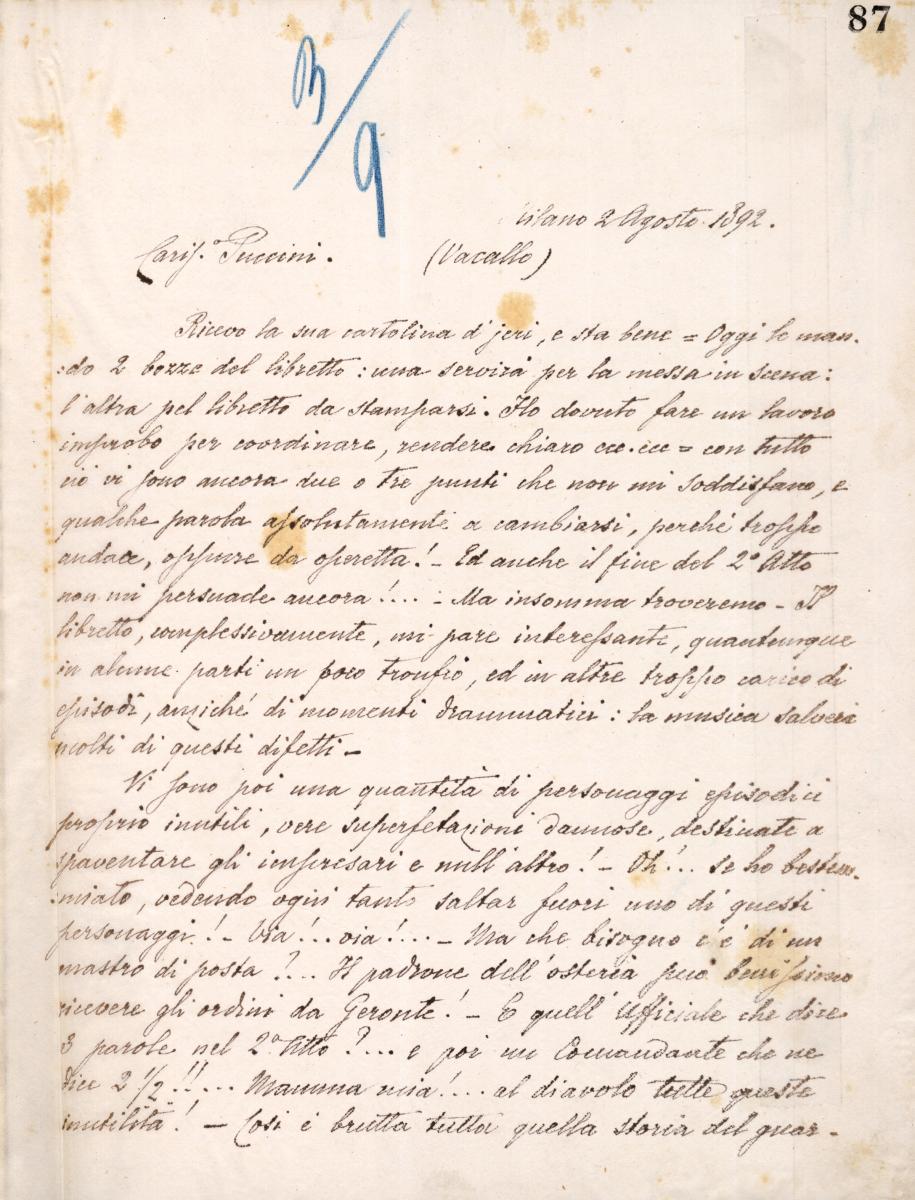 87
3/9
Milano 2 Agosto 1892.
Cariss.º Puccini. (Vacallo)
Ricevo la sua cartolina d'jeri, e sta bene = Oggi le man-
:do 2 bozze del libretto : una servirà per la messa in scena :
l'altra pel libretto da stamparsi. Ho dovuto fare un lavoro
improbo per coordinare, rendere chiaro ecc. ecc = con tutto
ciò vi sono ancora due o tre punti che non mi soddisfano, e
qualche parola assolutamente a cambiarsi, perché troppo
audace, oppure da operetta! - Ed anche il fine del 2º Atto
non mi persuade ancora!.... - Ma insomma troveremo - Il
libretto, complessivamente, mi pare interessante, quantunque
in alcune parti un poco tronfio, ed in altre troppo carico di
episodi, anziché di momenti drammatici : la musica salverà
molti di questi difetti -
Vi sono poi una quantità di personaggi episodici
proprio inutili, vere superfetazioni dannose, destinate a
spaventare gli impresari e null'altro! - Oh!... se ho bestem-
:miato, vedendo ogni tanto saltar fuori uno di questi
personaggi! - Via!... via!.... - Ma che bisogno c'è di un
mastro di posta?... Il padrone dell'osteria può benissimo
ricevere gli ordini da Geronte! - E quell'Ufficiale che dice
3 parole nel 2º Atto?.... e poi un Comandante che ne
dice 2 1/2!!... Mamma mia!.... al diavolo tutte queste
inutilità! - Così è brutta tutta quella storia del guar-